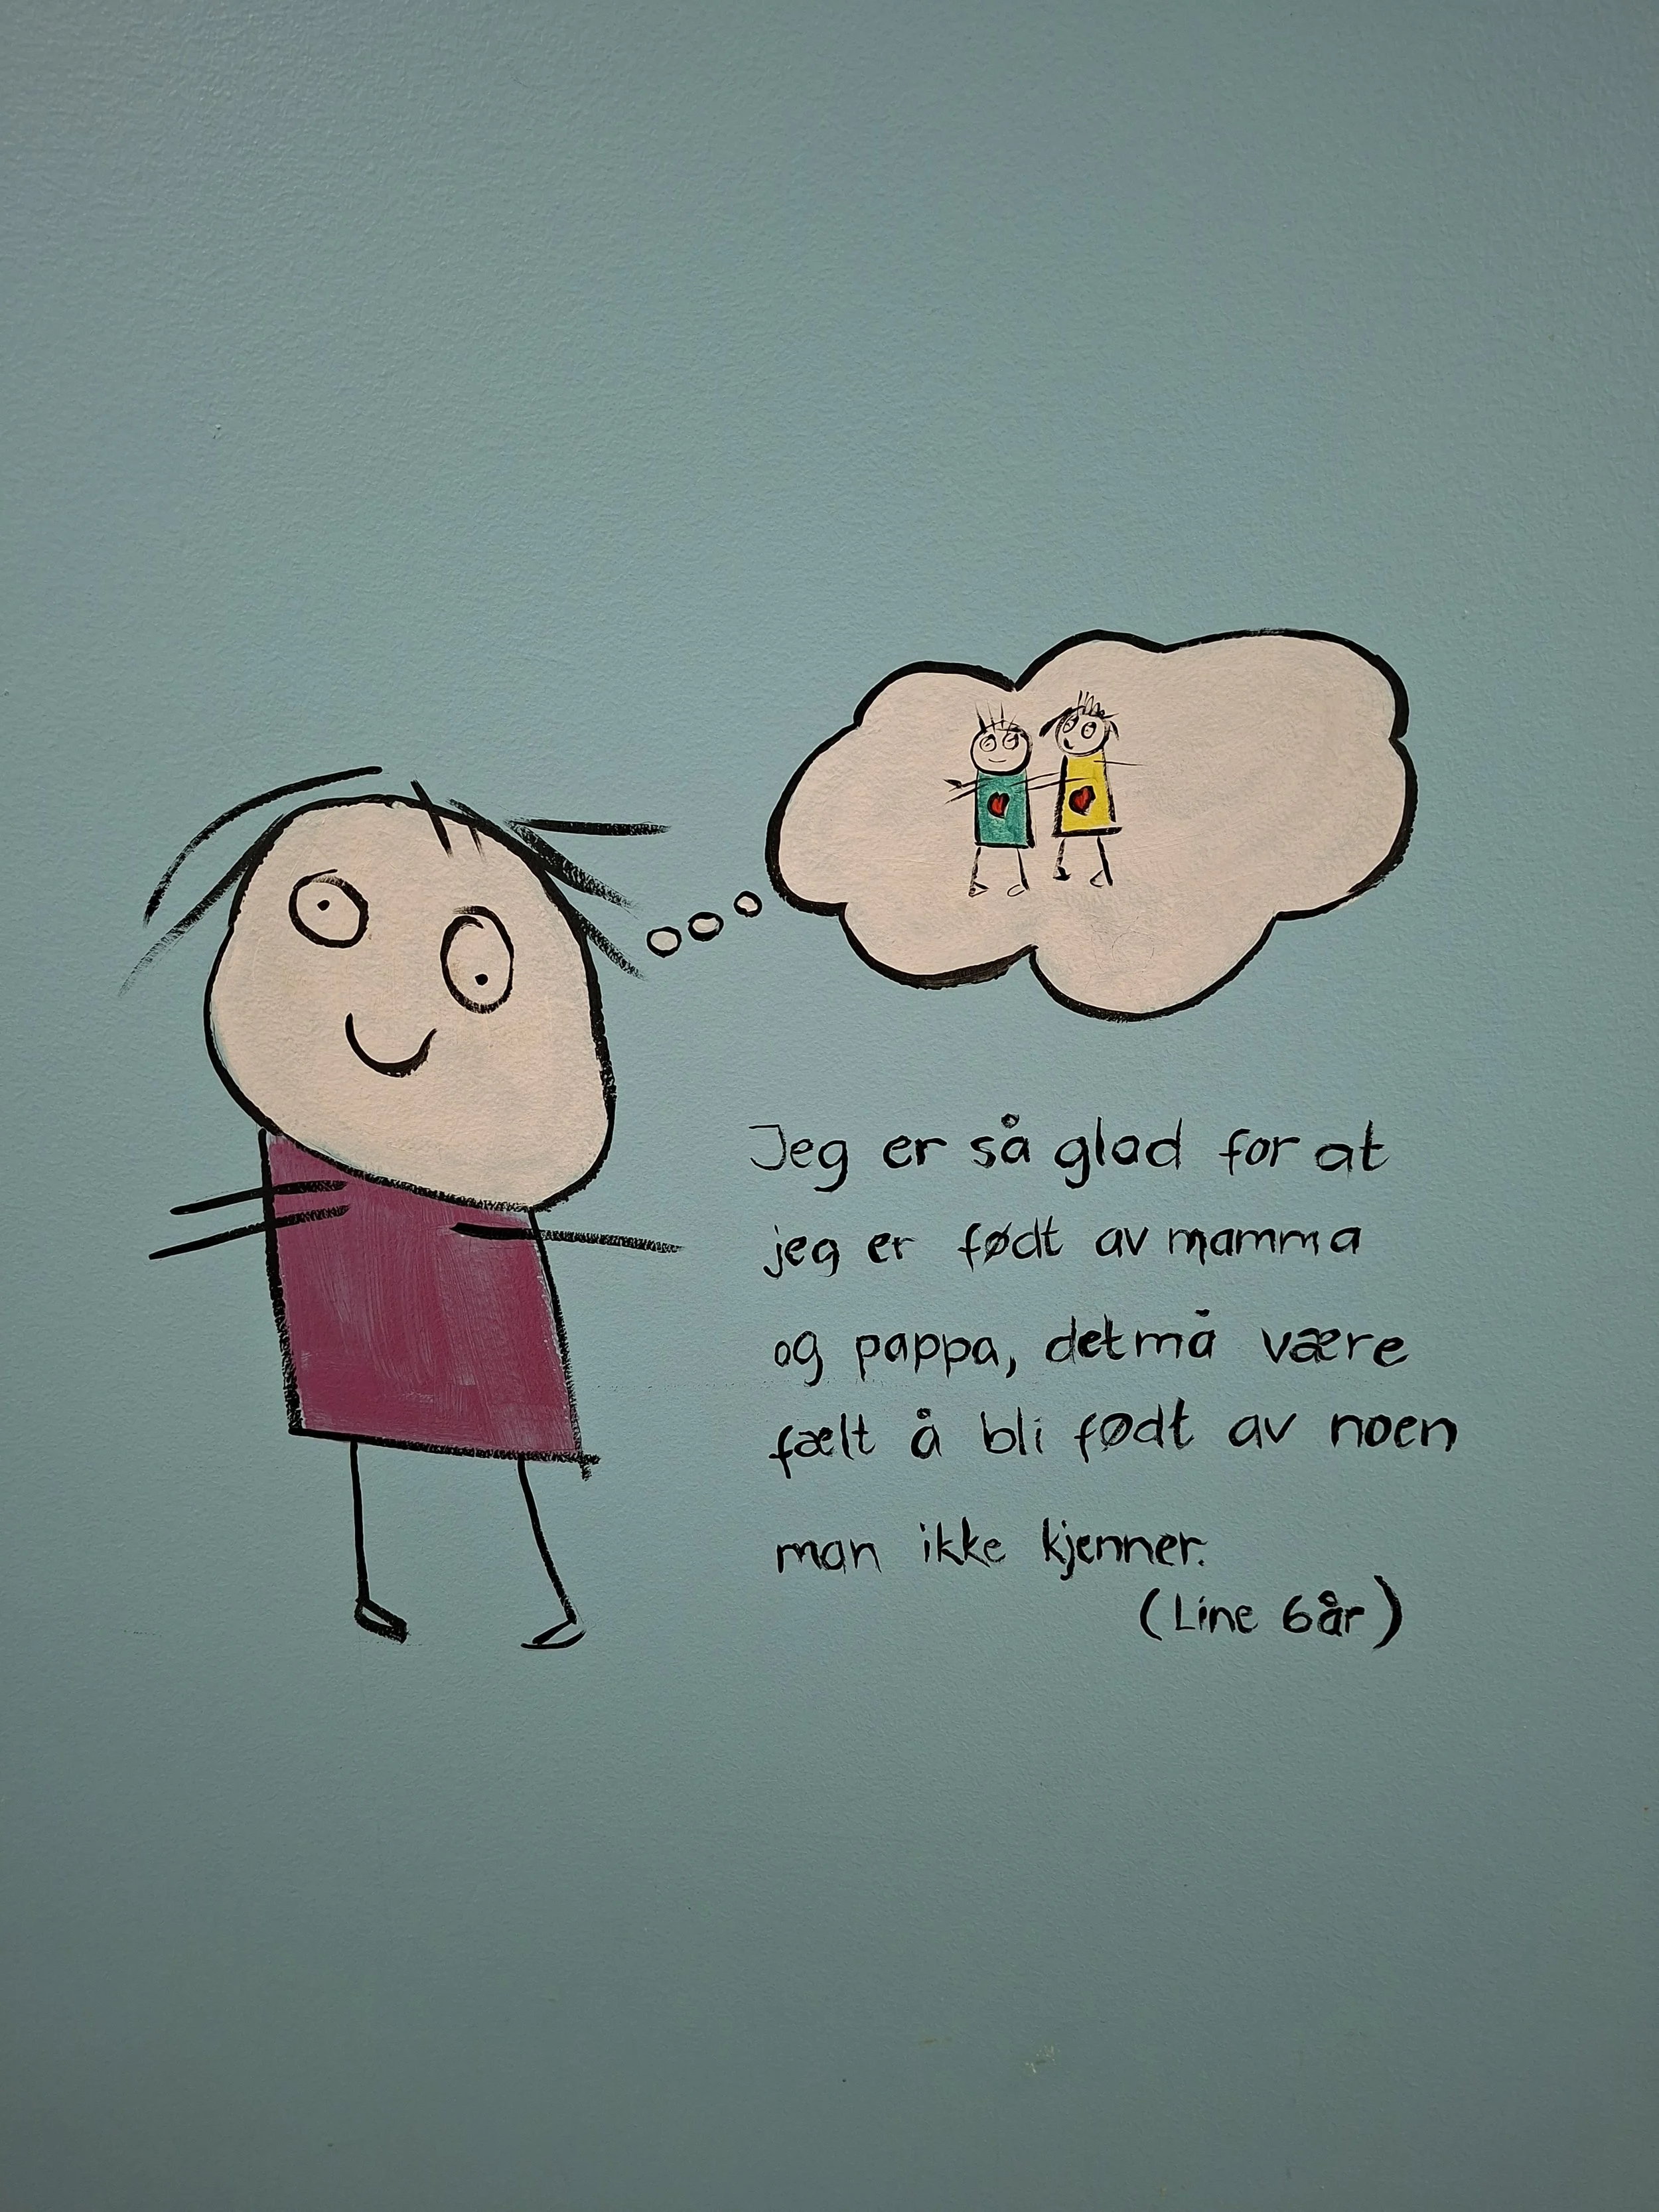 Jeg er så glad for at
jeg er født av mamma
og pappa, det må være
fælt å bli født av noen
man ikke kjenner.
(Line 6år)